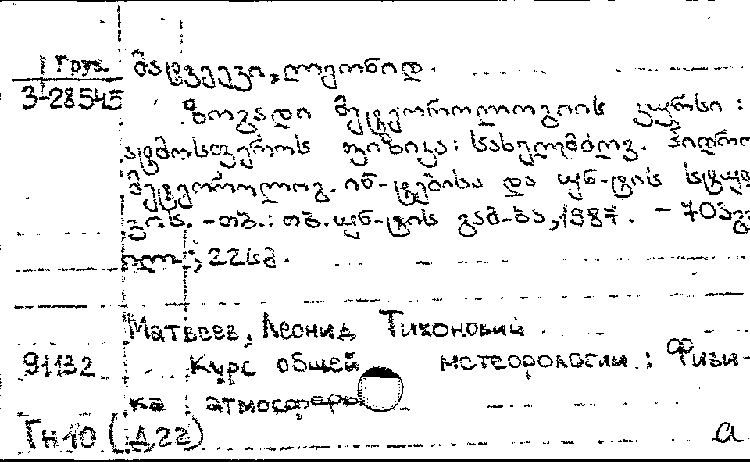 Груз. მატვეევი, ლეონიდ.
3-28545 ზოგადი მეტეოროლოგიის კურსი:
ატმოსფეროს ფიზიკა: სახელმძღვ. ჰიდრო
მეტეოროლოგ. ინ-ტებისა და უნ-ტის სტუდ
-თბ.: თბ. უნ-ტის გამ-ბა, 1987. - 70
22სმ.
Матвеев, Леонид Тихонович.
91132 Курс общей метеорологии: Физи-
ка атмосферы
Гн10 (Д22) a